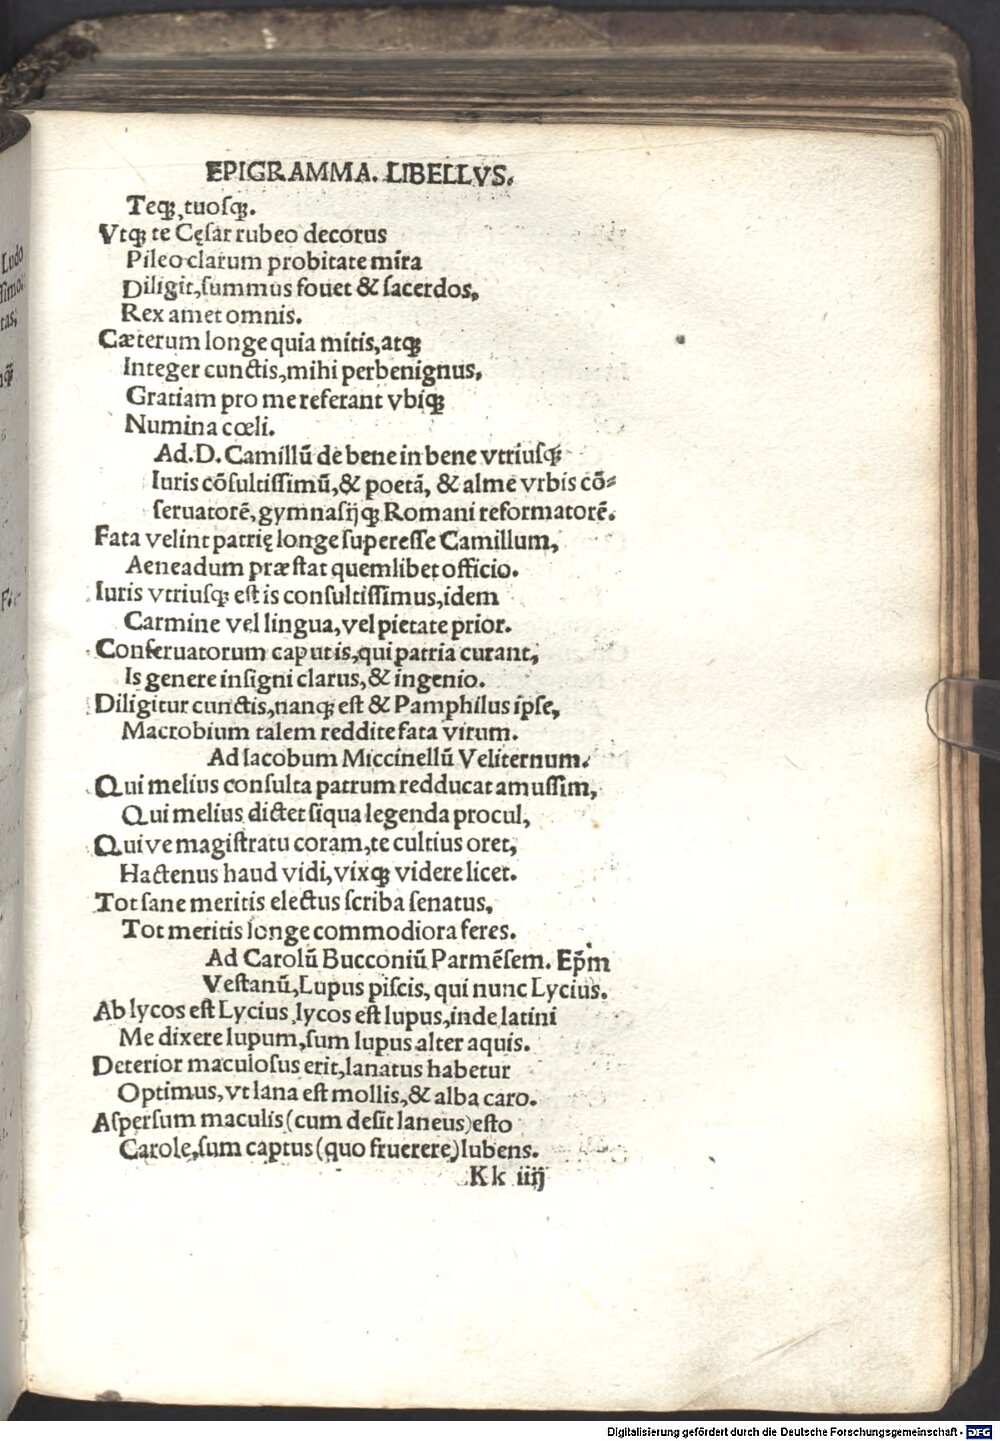 EPIGRAMMA. LIBELLVS.
Teqꝫ, tuoſqꝫ.
Vtqꝫ te Cęſar rubeo decorus
Pileo clarum probitate mira
Diligit, ſummus fouet & ſacerdos,
Rex amet omnis.
Cæterum longe quia mitis, atqꝫ
Integer cunctis, mihi perbenignus,
Gratiam pro me referant vbiqꝫ
Numina cœli.
Ad. D. Camillū de bene in bene vtriuſqꝫ
Iuris cōſultiſſimū, & poetā, & alme vrbis cō⸗
ſeruatorē, gymnaſijqꝫ Romani reformatorē.
Fata velint patrię longe ſupereſſe Camillum,
Aeneadum præſtat quemlibet officio.
Iuris vtriuſqꝫ eſt is conſultiſſimus, idem
Carmine vel lingua, vel pietate prior.
Conſeruatorum caput is, qui patria curant,
Is genere inſigni clarus, & ingenio.
Diligitur cunctis, nanqꝫ eſt & Pamphilus ipſe,
Macrobium talem reddite fata virum.
Ad Iacobum Miccinellū Veliternum.
Qui melius conſulta patrum redducat amuſſim,
Qui melius dictet ſiqua legenda procul,
Quive magiſtratu coram, te cultius oret,
Hactenus haud vidi, vixqꝫ videre licet.
Tot ſane meritis electus ſcriba ſenatus,
Tot meritis longe commodiora feres.
Ad Carolū Bucconiū Parmēſem. Ep̄m
Veſtanū, Lupus piſcis, qui nunc Lycius.
Ab lycos eſt Lycius, lycos eſt lupus, inde latini
Me dixere lupum, ſum lupus alter aquis.
Deterior maculoſus erit, lanatus habetur
Optimus, vt lana eſt mollis, & alba caro.
Aſperſum maculis (cum deſit laneus) eſto
Carole, ſum captus (quo fruerere) lubens.
Kk iiij
Ludo
ſſimo.
tas;
Digitalisierung gefördert durch die Deutsche Forschungsgemeinschaft - DFG